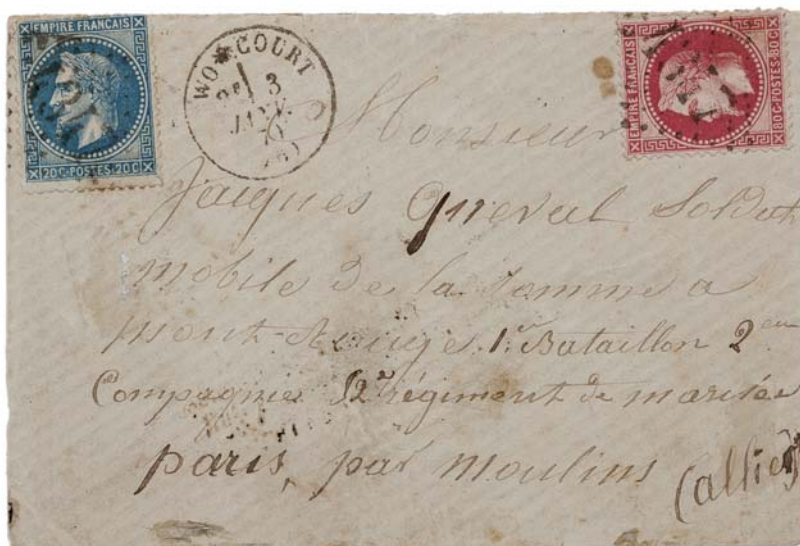 EMPIRE FRANCAIS
20C·POSTES·20C
WOINCOURT
3
JANV.
EMPIRE FRANCAIS
80C·POSTES·80C
Monsieur
Jacques Quevel Soldat
mobile de la Somme a
mont-Rouge 1er Bataillon 2em
Compagnie 52e régiment de
paris, par Moulins (allier)